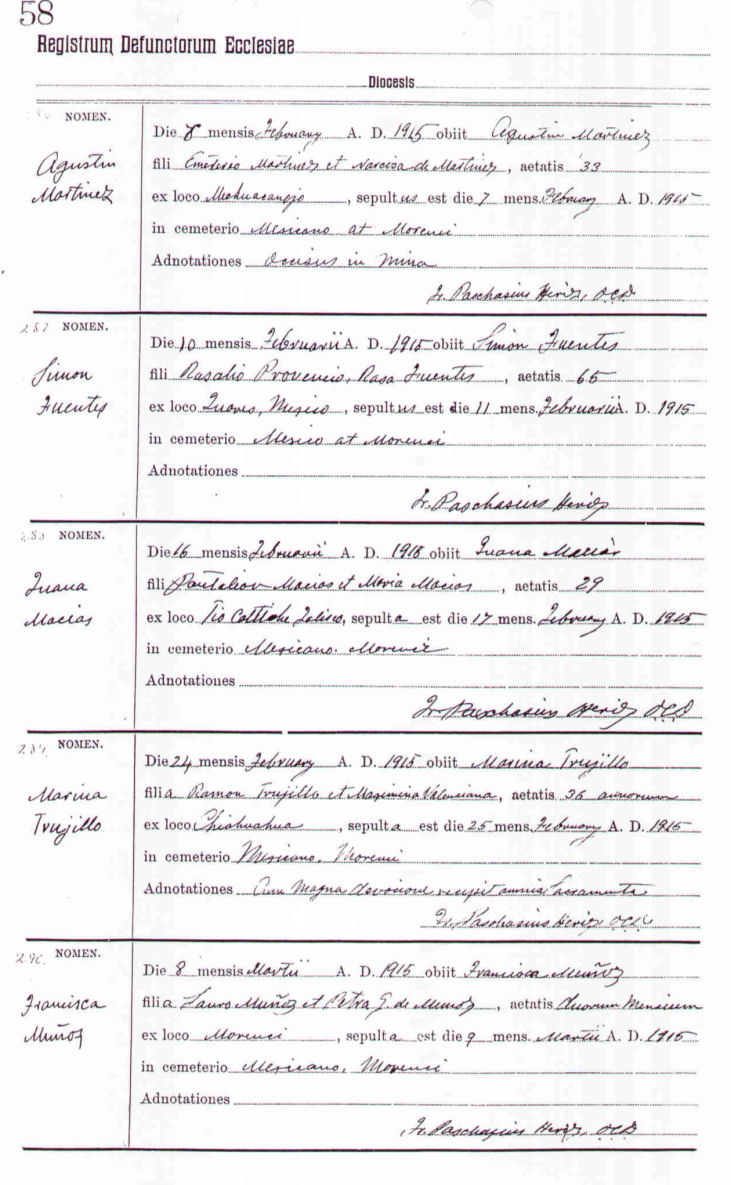 58
Registrum Defunctorum Ecclesiae
Diocesis
NOMEN.
Agustin
Martinez
Die 8 mensis February A. D. 1915 obiit Agustin Martinez
fili Emeterio Martinez et Narcisa de Martinez, aetatis 33
ex loco, sepultus est die 7 mens. February A. D. 1915
in cemeterio Mexicano at Morenci
Adnotationes Occisus in Mina
Fr. Paschasius Heriz, OCD
287 NOMEN.
Simon
Fuentes
Die 10 mensis Februarii A. D. 1915 obiit Simon Fuentes
fili Rosalio Provencio, Rosa Fuentes, aetatis 65
ex loco Juares, Mexico, sepultus est die 11 mens. Februarii A. D. 1915
in cemeterio Mexico at Morenci
Adnotationes
Fr. Paschasius Heriz
NOMEN.
Juana
Macias
Die 16 mensis Februarii A. D. 1915 obiit Juana Macias
fili Pantaleon Macias et Maria Macias, aetatis 29
ex loco Jalisco, sepulta est die 17 mens. February A. D. 1915
in cemeterio Mexicano. Morenci
Adnotationes
Fr. Paschasius Heriz OCD
289 NOMEN.
Marina
Trujillo
Die 24 mensis February A. D. 1915 obiit Marina Trujillo
filia Ramon Trujillo et Maximina Valenciana, aetatis 36 annorum
ex loco Chiahuahua, sepulta est die 25 mens. February A. D. 1915
in cemeterio Mexicano. Morenci
Adnotationes Cum Magna devocione recipit omnia Sacramenta
Fr. Paschasius Heriz OCD
290. NOMEN.
Francisca
Muñoz
Die 8 mensis Martii A. D. 1915 obiit Francisca Muñoz
filia Lauro Muñoz et Petra G. de Munoz, aetatis duorum Mensium
ex loco Morenci, sepulta est die 9 mens. Martii A. D. 1915
in cemeterio Mexicano, Morenci
Adnotationes
Fr. Paschasius Heriz, OCD